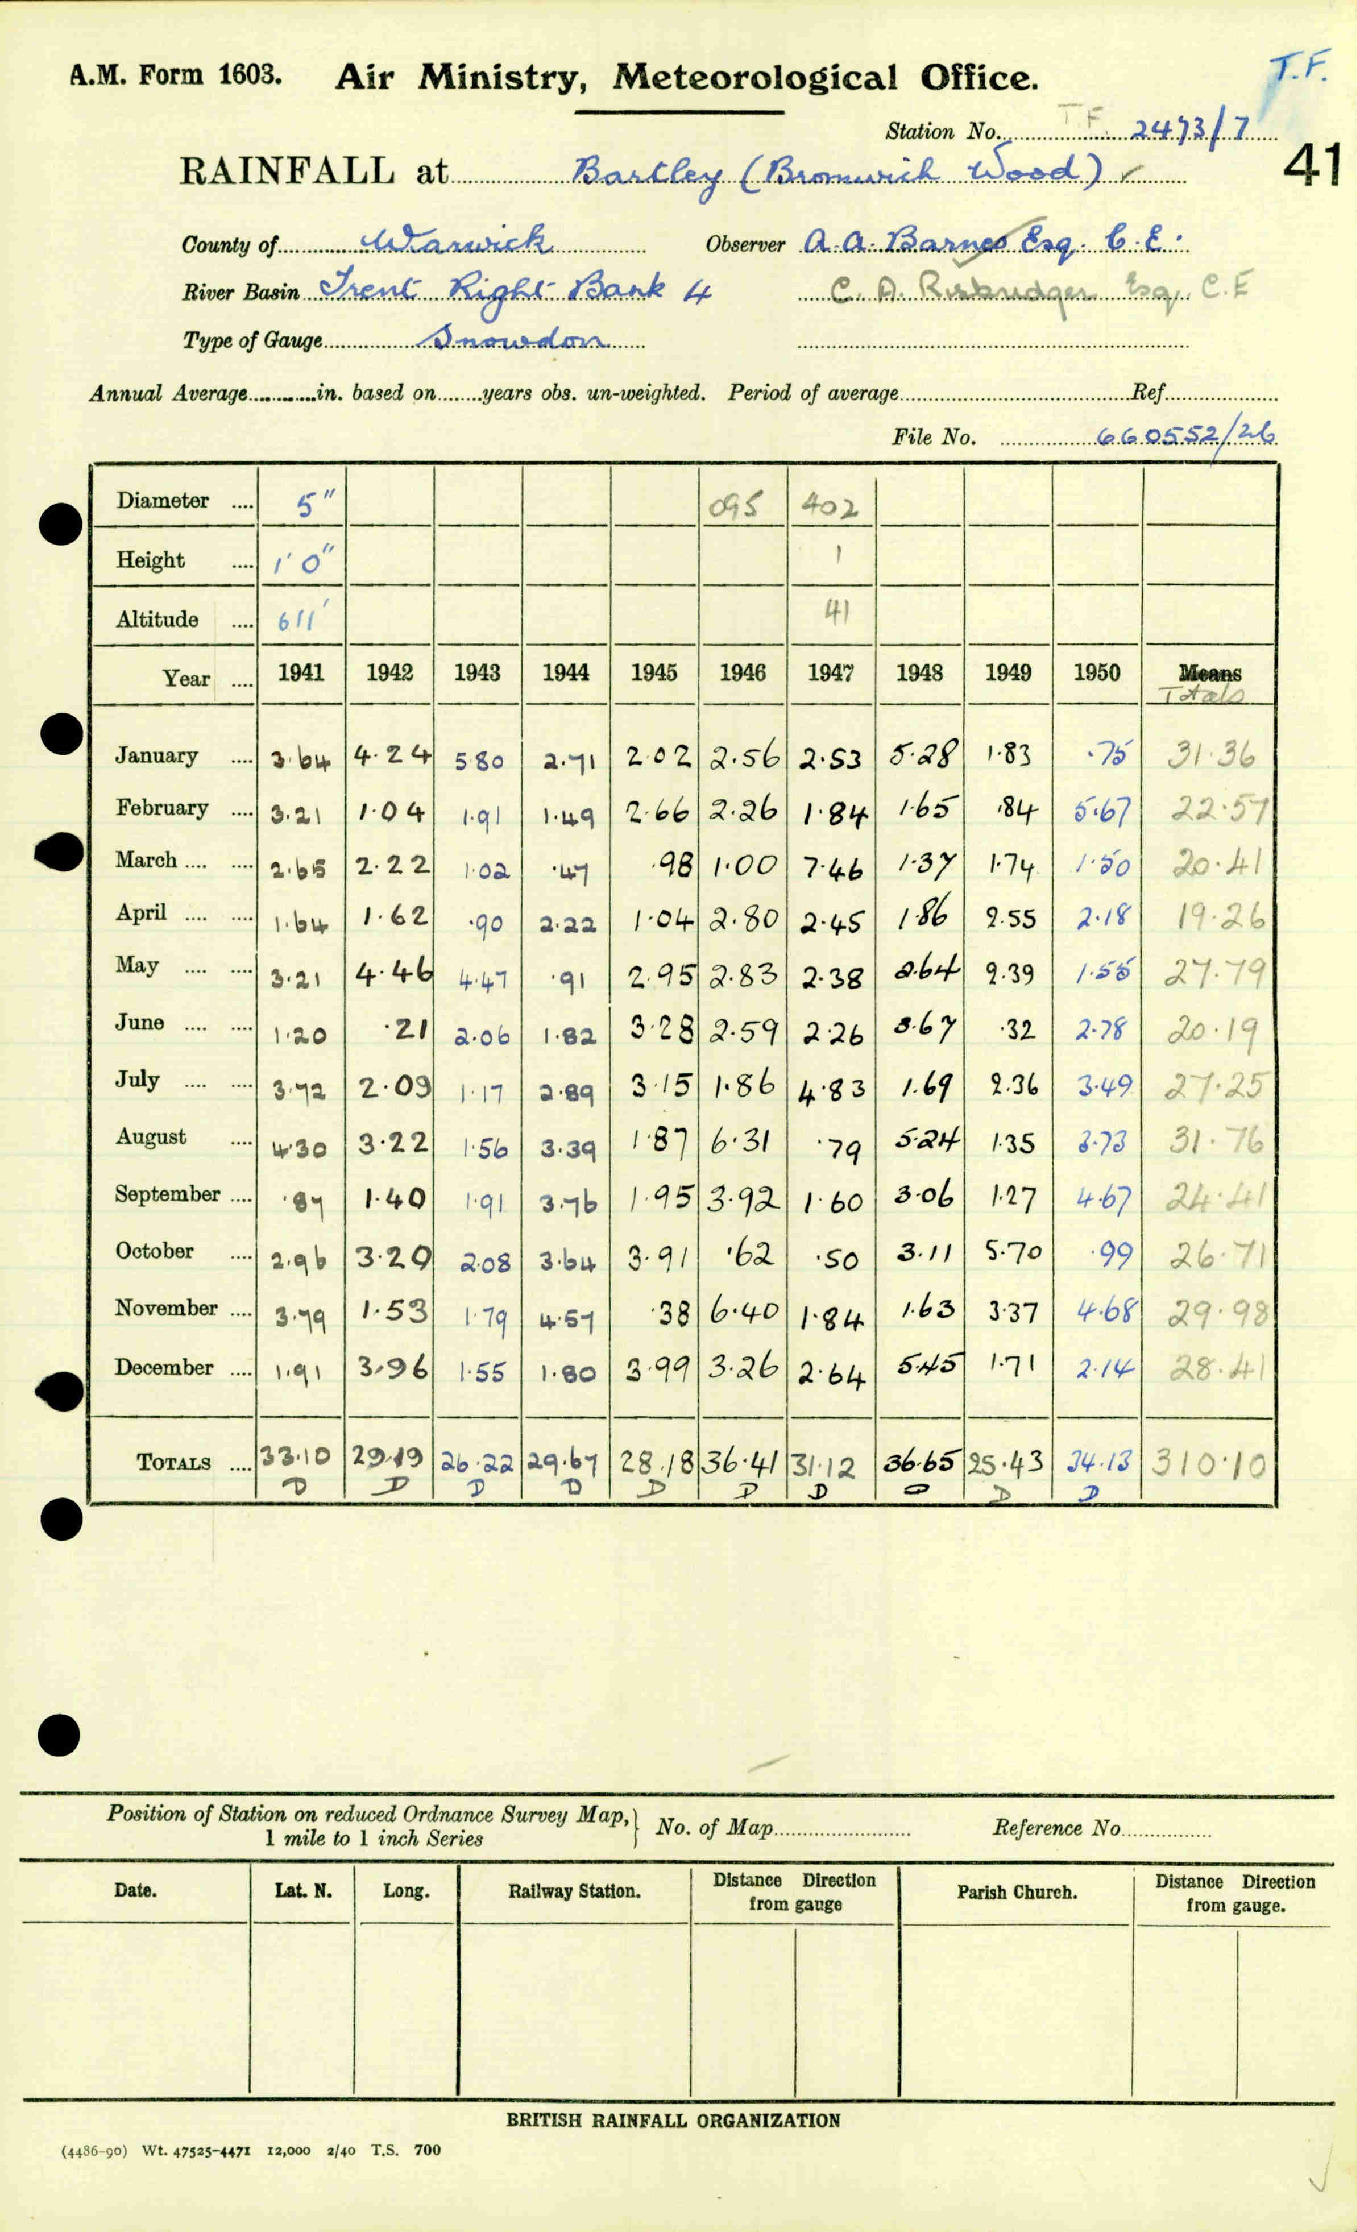 T.F.
A.M. Form 1603. Air Ministry, Meteorological Office.
Station No. T F. 2473/7
RAINFALL at Bartley (Bromwich Wood) ✓
41
County of Warwick Observer A. A. Barnes Esq. C. E.
River Basin Trent Right Bank 4 C. A. Risbridger Esq. C.E
Type of Gauge Snowdon
Annual Average in. based on years obs. un-weighted. Period of average Ref.
File No. 660552/26
Diameter .... 5" 095 402
Height .... 1' 0" 1
Altitude .... 611' 41
Year .... 1941 1942 1943 1944 1945 1946 1947 1948 1949 1950 Means
Totals
January .... 3.64 4.24 5.80 2.71 2.02 2.56 2.53 5.28 1.83 .75 31.36
February .... 3.21 1.04 1.91 1.49 2.66 2.26 1.84 1.65 .84 5.67 22.57
March .... .... 2.65 2.22 1.02 .47 .98 1.00 7.46 1.37 1.74 1.50 20.41
April .... .... 1.64 1.62 .90 2.22 1.04 2.80 2.45 1.86 2.55 2.18 19.26
May .... .... 3.21 4.46 4.47 .91 2.95 2.83 2.38 2.64 2.39 1.55 27.79
June .... .... 1.20 .21 2.06 1.82 3.28 2.59 2.26 3.67 .32 2.78 20.19
July .... .... 3.72 2.09 1.17 2.89 3.15 1.86 4.83 1.69 2.36 3.49 27.25
August .... 4.30 3.22 1.56 3.39 1.87 6.31 .79 5.24 1.35 3.73 31.76
September .... .87 1.40 1.91 3.76 1.95 3.92 1.60 3.06 1.27 4.67 24.41
October .... 2.96 3.20 2.08 3.64 3.91 .62 .50 3.11 5.70 .99 26.71
November .... 3.79 1.53 1.79 4.57 .38 6.40 1.84 1.63 3.37 4.68 29.98
December .... 1.91 3.96 1.55 1.80 3.99 3.26 2.64 5.45 1.71 2.14 28.41
TOTALS .... 33.10 29.19 26.22 29.67 28.18 36.41 31.12 36.65 25.43 34.13 310.10
D D D D D D D D D D
Position of Station on reduced Ordnance Survey Map, } No. of Map Reference No.
1 mile to 1 inch Series
Date. Lat. N. Long. Railway Station. Distance Direction from gauge Parish Church. Distance Direction from gauge.
BRITISH RAINFALL ORGANIZATION
(4486-90) Wt. 47525-4471 12,000 2/40 T.S. 700